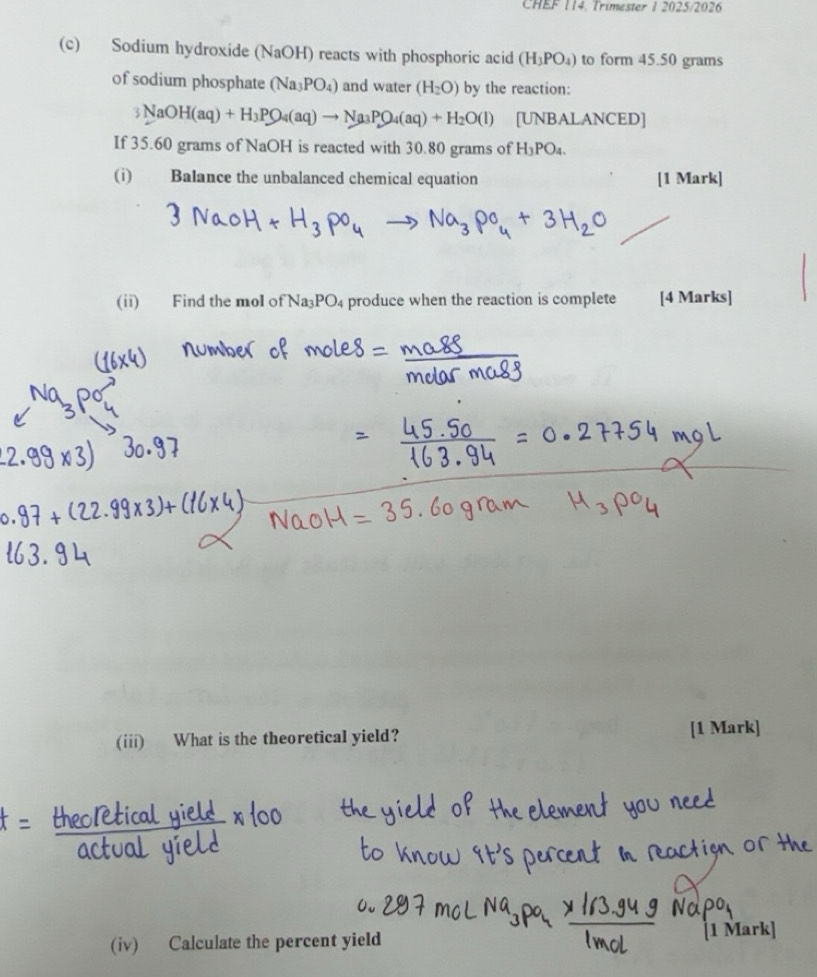 CHEF 114. Trimester 1 2025/2026
(c) Sodium hydroxide (NaOH) reacts with phosphoric acid (H₃PO₄) to form 45.50 grams
of sodium phosphate (Na₃PO₄) and water (H₂O) by the reaction:
3 NaOH(aq) + H₃PO₄(aq) → Na₃PO₄(aq) + H₂O(l) [UNBALANCED]
If 35.60 grams of NaOH is reacted with 30.80 grams of H₃PO₄.
(i) Balance the unbalanced chemical equation [1 Mark]
3 NaOH + H₃PO₄ → Na₃PO₄ + 3H₂O
(ii) Find the mol of Na₃PO₄ produce when the reaction is complete [4 Marks]
(16×4) number of moles = mass
molar mass
Na₃PO₄
2.99 ×3) 30.97
= 45.50 = 0.27754 mol
163.94
0.97 + (22.99×3)+(16×4)
NaOH = 35.60 gram H₃PO₄
163.94
(iii) What is the theoretical yield? [1 Mark]
t = theoretical yield × 100 the yield of the element you need
actual yield to know it's percent in reaction or the
0.297 mol Na₃PO₄ × 163.94 g NaPO₄
1mol
(iv) Calculate the percent yield [1 Mark]